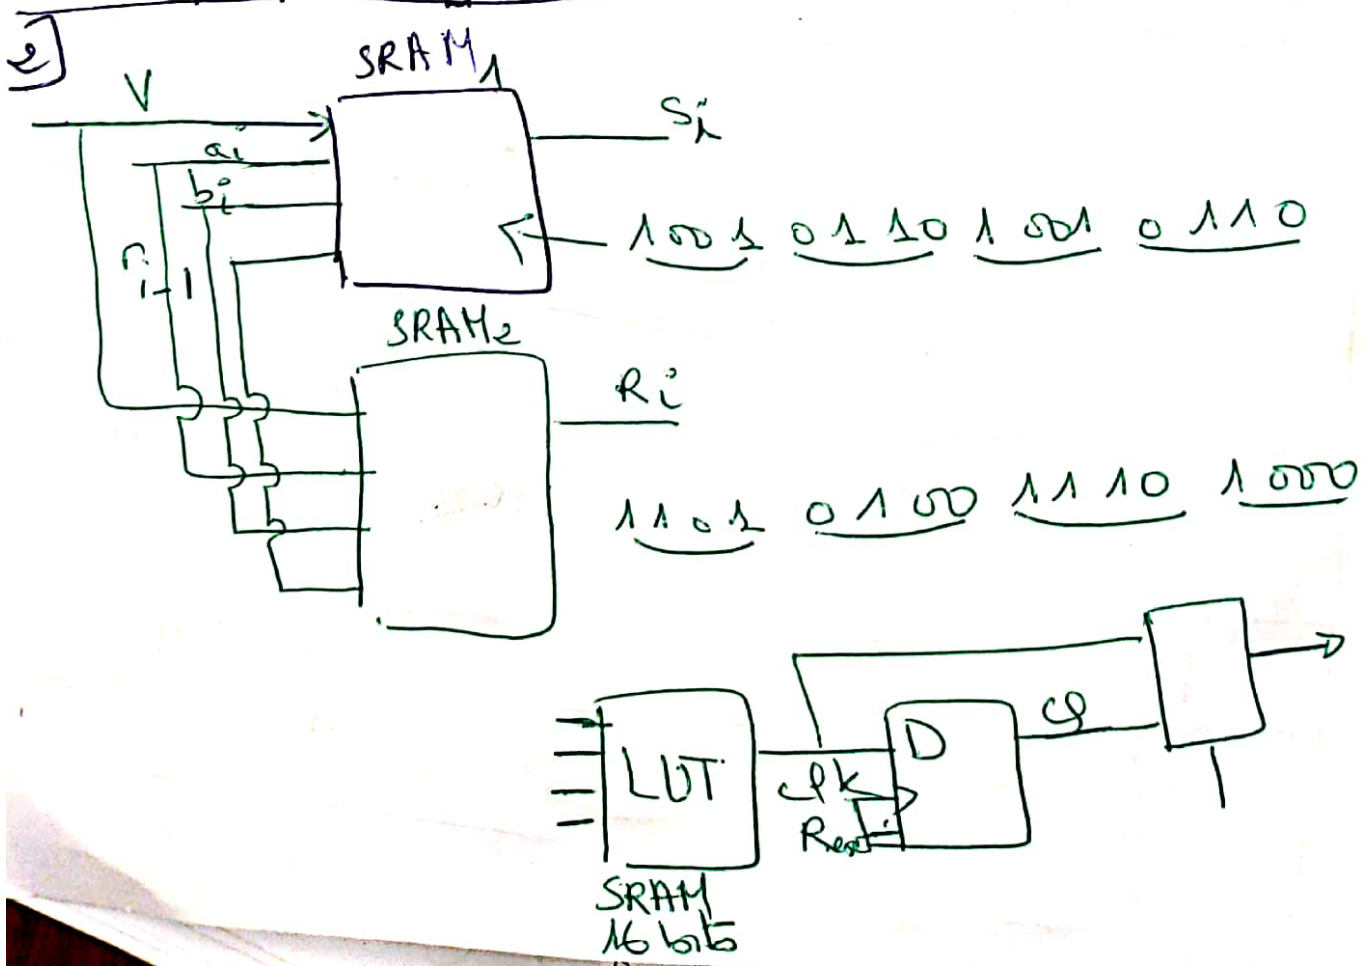 2]
SRAM1
V
Si
ai
bi
ri-1
1001 0110 1001 0110
SRAM2
Ri
1101 0100 1110 1000
D
Q
LUT
clk
Reset
SRAM
16 bits